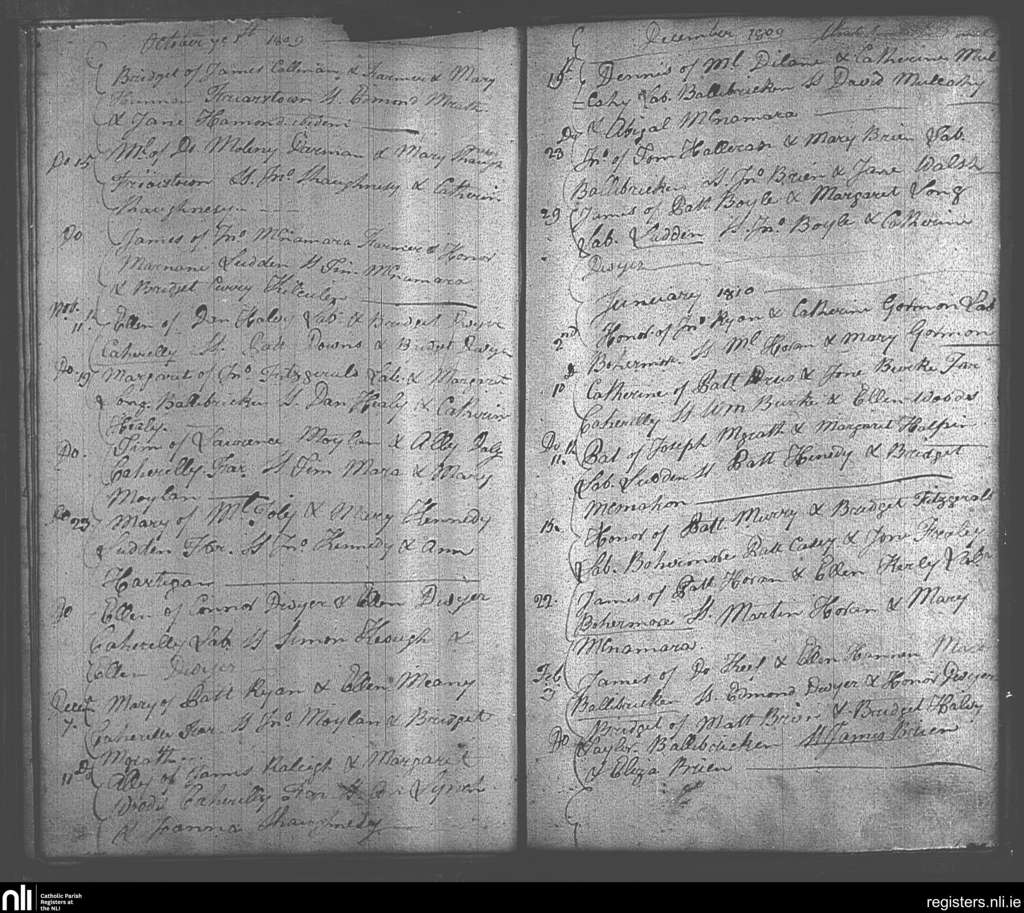 October ye 8th 1809
Bridget of James Calleman, & Farmer & Mary
Friarstown Ss. Edmond
& Jane Hamond ibidem
Do 15 Ml. of Do Molony Farmer & Mary
Friarstown Ss. Jno. Shaughnesy & Catherin
Shaughnesy
Do James of Jno McNamara Farmer & Honor
Marnane Ludden Ss Tim McNamara
& Bridget
Novr. 11th Ellen of Dan Healy Lab. & Bridget Dwyer
Caherelly Ss. Patt Downs & Bridget Dwyer
Do. 19 Margaret of Jno. Fitzgerald Lab. & Margaret
Long. Ballibricken Ss. Dan Healy & Catherin
Healy.
Do. Tim of Laurence Moylan & Ally Daly
Caherelly Far. Ss Tim Mara & Mary
Moylan
Do 23 Mary of Ml. & Mary Kennedy
Ludden Far. Ss Jno Kennedy & Ann
Hartigan
Do Ellen of Connor Dwyer & Ellen Dwyer
Caherelly Lab. Ss Simon Keough &
Ellen Dwyer
Decer. 7. Mary of Patt Ryan & Ellen Meany
Caherelly Far. Ss Jno Moylan & Bridget
Mgrath
11 Do Ally of James Raleigh & Margaret
Woods Caherelly Far Ss. Lynch
& Joanna Shaughnesy
December 1809
15th Dennis of Ml Dilane & Catherine Mul
=cahy Lab. Ballibricken Ss David Mulcahy
& Abigal McNamara
Do 23 Jno. of Tom Halloran & Mary Brien Lab.
Ballibricken Ss Jno Brien & Jane Walsh
29 James of Patt Boyle & Margaret Long
Lab. Ludden Ss. Jno. Boyle & Catherine
Dwyer
Juneuary 1810
2nd Honor of Jno Ryan & Catherine Gormon Lab
Bohermore Ss Ml Horan & Mary Gormon
10 Catherine of Patt & Jone Burke Far
Caherelly Ss Wm Burke & Ellen Woods
Do 11th Pat of Joseph Mgrath & Margaret Halpin
Lab. Ludden Ss Patt Kinedy & Bridget
McMahon
Honor of Patt Murry & Bridget Fitzgerald
Lab. Bohermore Patt Casey & Jone
22. James of Patt Horan & Ellen Herly Lab.
Bohermore Ss. Martin Horan & Mary
McNamara.
Feb 3 James of Do & Ellen Hannan
Ballibricken Ss. Edmond Dwyer & Honor Dwyer
Do Bridget of Matt Brien & Bridget Healy
Taylor Ballibricken Ss James Brien
& Eliza Brien
nli
Catholic Parish
Registers at
the NLI
registers.nli.ie